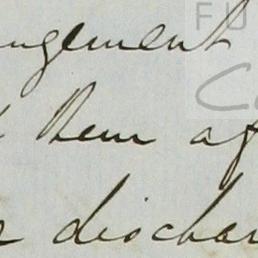 ngement
them af
dischar